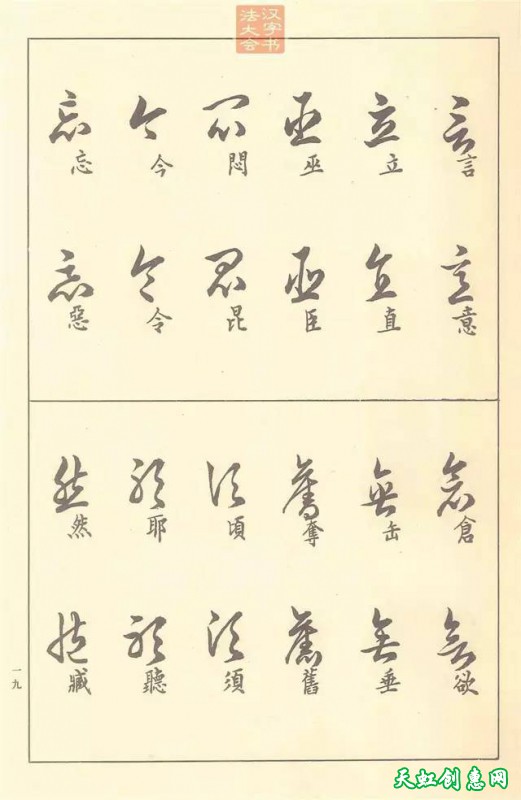 汉字书
法大会
言 立 巫 悶 今 忘
意 直 臣 昆 令 惡
倉 缶 奪 頃 耶 然
欲 垂 舊 須 聽 臧
一九
天虹创惠网